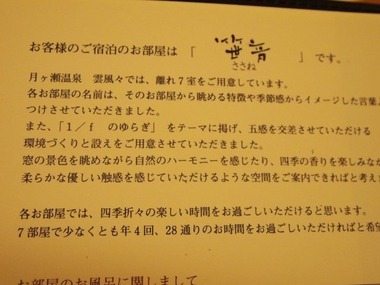 お客様のご宿泊のお部屋は 「 笹音 」 です。
ささね
月ヶ瀬温泉 雲風々では、離れ7室をご用意しています。
各お部屋の名前は、そのお部屋から眺める特徴や季節感からイメージした言葉よ
つけさせていただきました。
また、「1/f のゆらぎ」をテーマに掲げ、五感を交差させていただける
環境づくりと設えをご用意させていただきました。
窓の景色を眺めながら自然のハーモニーを感じたり、四季の香りを楽しみなが
柔らかな優しい触感を感じていただけるような空間をご案内できればと考えま
各お部屋では、四季折々の楽しい時間をお過ごしいただけると思います。
7部屋で少なくとも年4回、28通りのお時間をお過ごしいただければと希望
お部屋のお風呂に関しまして